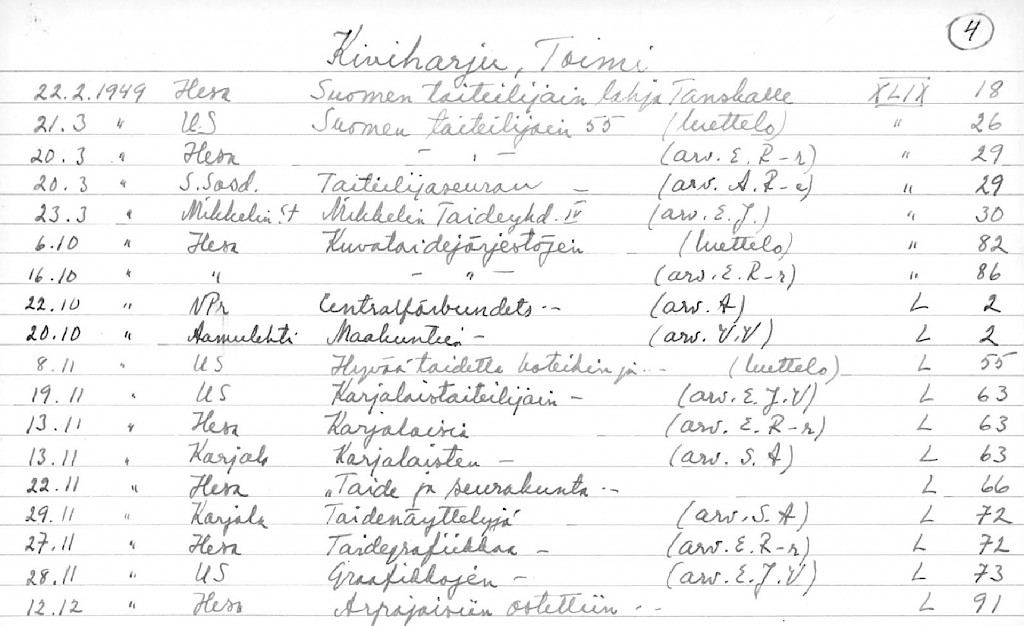 4
Kiviharju, Toimi
22.2.1949 Hesa Suomen taiteilijain lahja Tanskalle XLIX 18
21.3 " U.S Suomen taiteilijain 55 (luettelo) " 26
20.3 " Hesa - " - (arv. E. R-r) " 29
20.3 " S.Sosd. Taiteilijaseuran - (arv. A. R-e) " 29
23.3 " Mikkelin S:t Mikkelin Taideyhd. IV (arv. E. J.) " 30
6.10 " Hesa Kuvataidejärjestöjen (luettelo) " 82
16.10 " " - " - (arv. E. R-r) " 86
22.10 " NPr Centralförbundets -- (arv. A) L 2
20.10 " Aamulehti Maakuntien - (arv. V.V) L 2
8.11 " US Hyvää taidetta koteihin ja -- (luettelo) L 55
19.11 " US Karjalaistaiteilijain - (arv. E. J. V) L 63
13.11 " Hesa Karjalaisia (arv. E. R-r) L 63
13.11 " Karjala Karjalaisten - (arv. S. A) L 63
22.11 " Hesa "Taide ja seurakunta -- L 66
29.11 " Karjala Taidenäyttelyjä (arv. S. A) L 72
27.11 " Hesa Taidegrafiikkaa - (arv. E. R-r) L 72
28.11 " US Graafikkojen - (arv. E. J. V) L 73
12.12 " Hesa Arpajaisiin ostettiin -- L 91